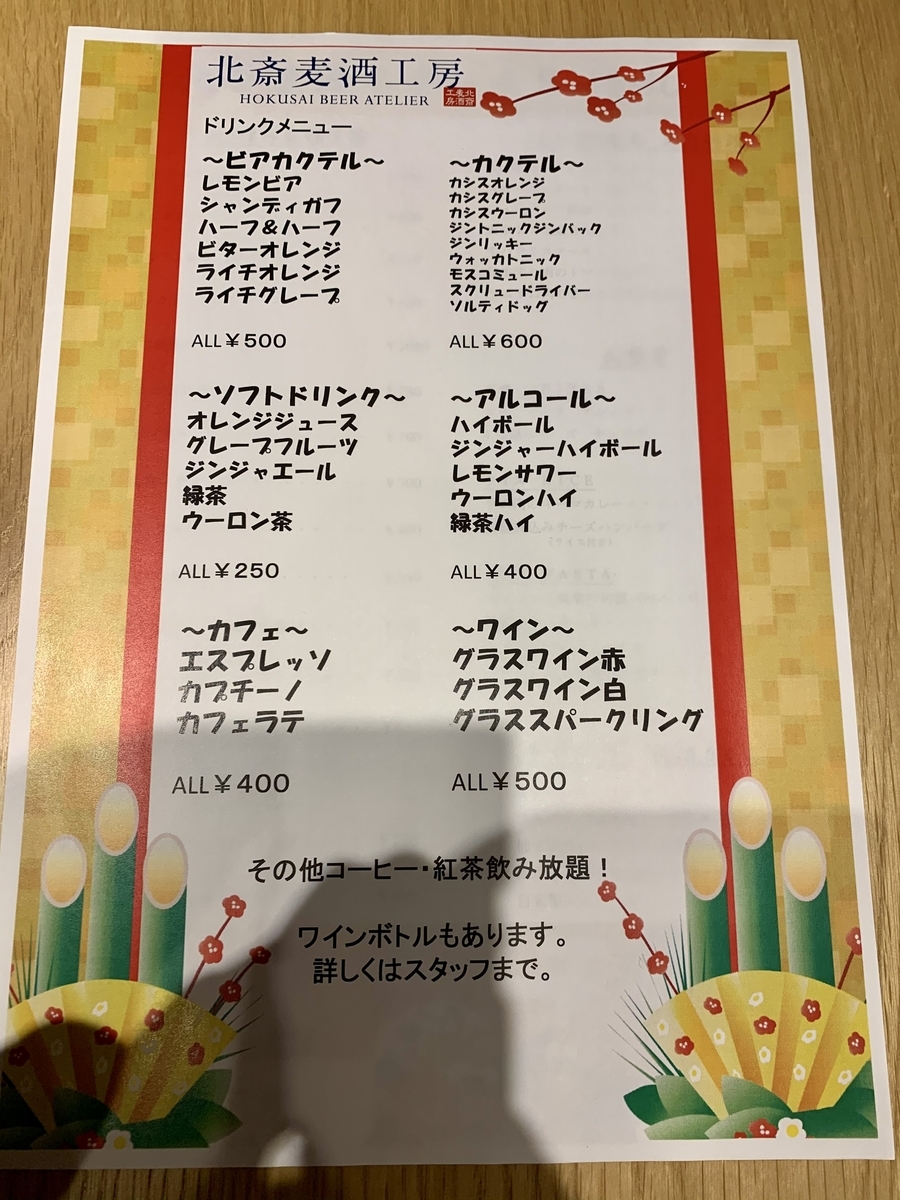 北斎麦酒工房
HOKUSAI BEER ATELIER
北斎麦酒工房
ドリンクメニュー
～ビアカクテル～
レモンビア
シャンディガフ
ハーフ&ハーフ
ビターオレンジ
ライチオレンジ
ライチグレープ
ALL￥500
～カクテル～
カシスオレンジ
カシスグレープ
カシスウーロン
ジントニックジンバック
ジンリッキー
ウォッカトニック
モスコミュール
スクリュードライバー
ソルティドッグ
ALL￥600
～ソフトドリンク～
オレンジジュース
グレープフルーツ
ジンジャエール
緑茶
ウーロン茶
ALL￥250
～アルコール～
ハイボール
ジンジャーハイボール
レモンサワー
ウーロンハイ
緑茶ハイ
ALL￥400
～カフェ～
エスプレッソ
カプチーノ
カフェラテ
ALL￥400
～ワイン～
グラスワイン赤
グラスワイン白
グラススパークリング
ALL￥500
その他コーヒー・紅茶飲み放題！
ワインボトルもあります。
詳しくはスタッフまで。